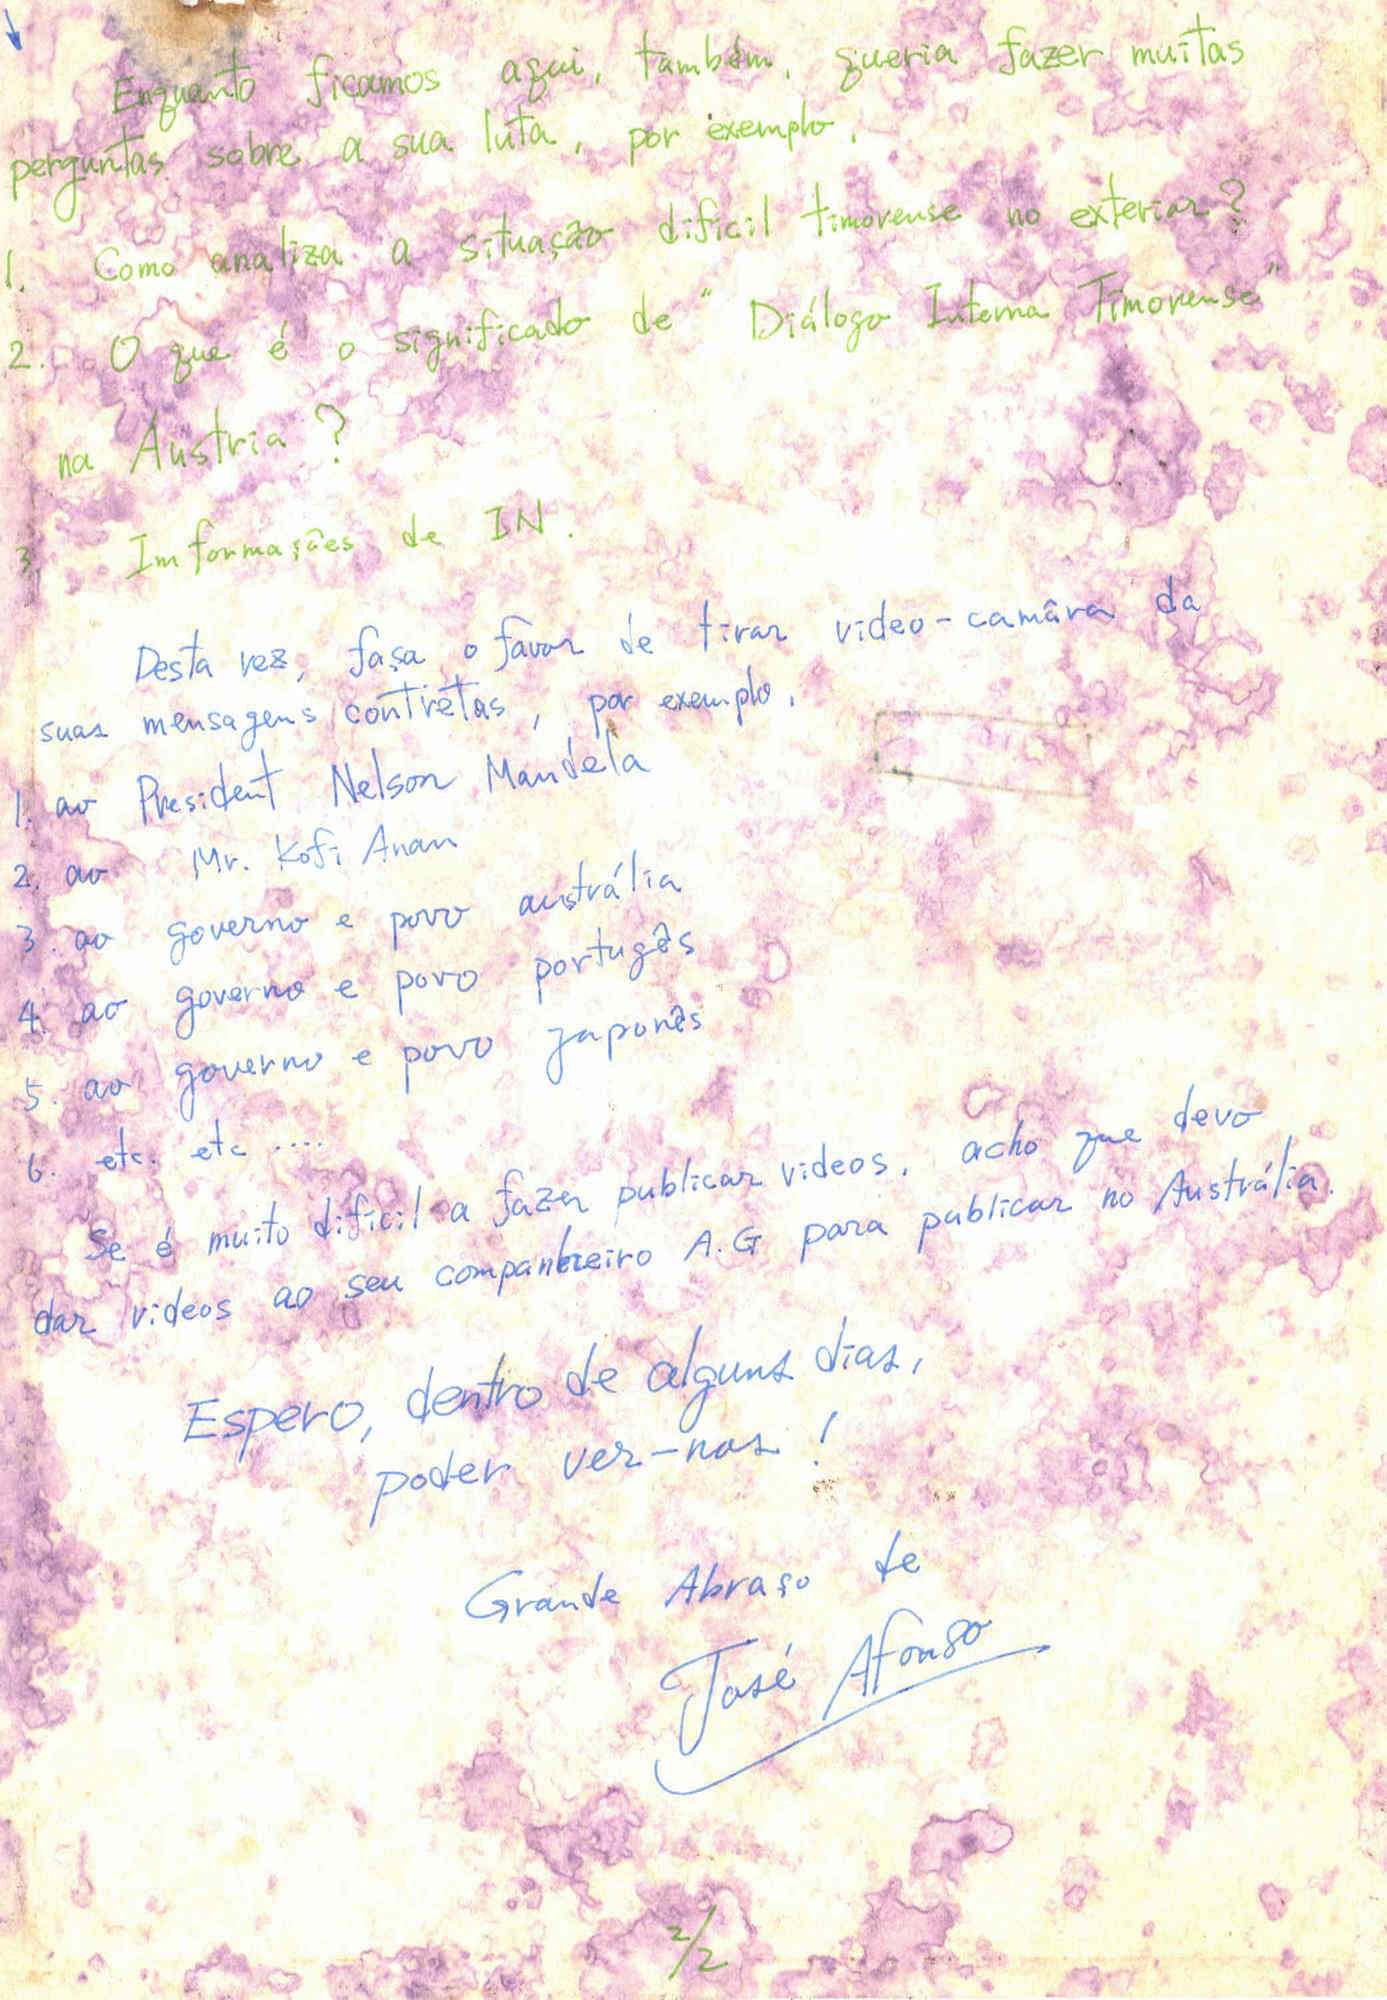 Enquanto ficamos aqui, também, queria fazer muitas
perguntas sobre a sua luta, por exemplo,
1. Como analiza a situação dificil timorense no exterior?
2. O que é o significado de "Diálogo Interna Timorense"
na Áustria?
3. Imformações de IN.
Desta vez, fasa o favor de tirar video-camâra da
suas mensagens contretas, por exemplo,
1. ao President Nelson Mandela
2. ao Mr. Kofi Anan
3. ao governo e povo austrália
4. ao governo e povo portugês
5. ao governo e povo japonês
6. etc. etc ....
Se é muito dificil a fazer publicar videos, acho que devo
dar videos ao seu companheiro A.G para publicar no Austrália.
Espero, dentro de alguns dias,
poder ver-nos!
Grande Abraço de
José Afonso
2/2